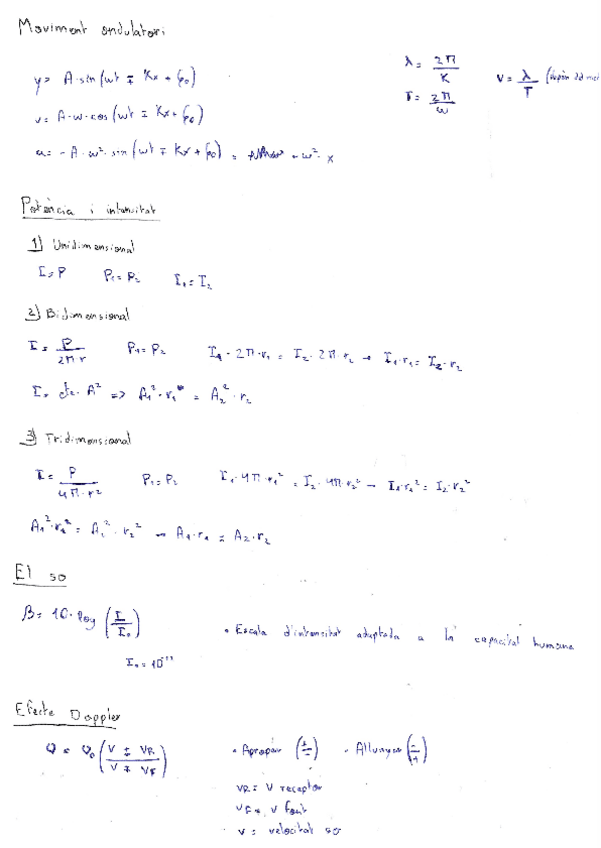 Moviment ondulatori
y= A·sin(wt ∓ Kx + φ0)
λ= 2π/K
T= 2π/w
v= λ/T
v= A·w·cos(wt ∓ Kx + φ0)
a= -A·w²·sin(wt ∓ Kx + φ0) = - w²·x
Potència i intensitat
1) Unidimensional
I=P P1=P2 I1=I2
2) Bidimensional
I= P/2π·r P1=P2 I1·2π·r1= I2·2π·r2 → I1·r1= I2·r2
I= cte·A² => A1²·r1 = A2²·r2
3) Tridimensional
I= P/4π·r² P1=P2 I1·4π·r1² = I2·4π·r2² → I1·r1² = I2·r2²
A1²·r1² = A2²·r2² → A1·r1 = A2·r2
El so
β= 10·log(I/I0)
• Escala d'intensitat adaptada a la capacitat humana
Efecte Doppler
υ = υ0 (V ± VR / V ∓ VF) • Apropar (+/-) • Allunyar (-/+)
VR= V receptor
VF= V font
V= velocitat so